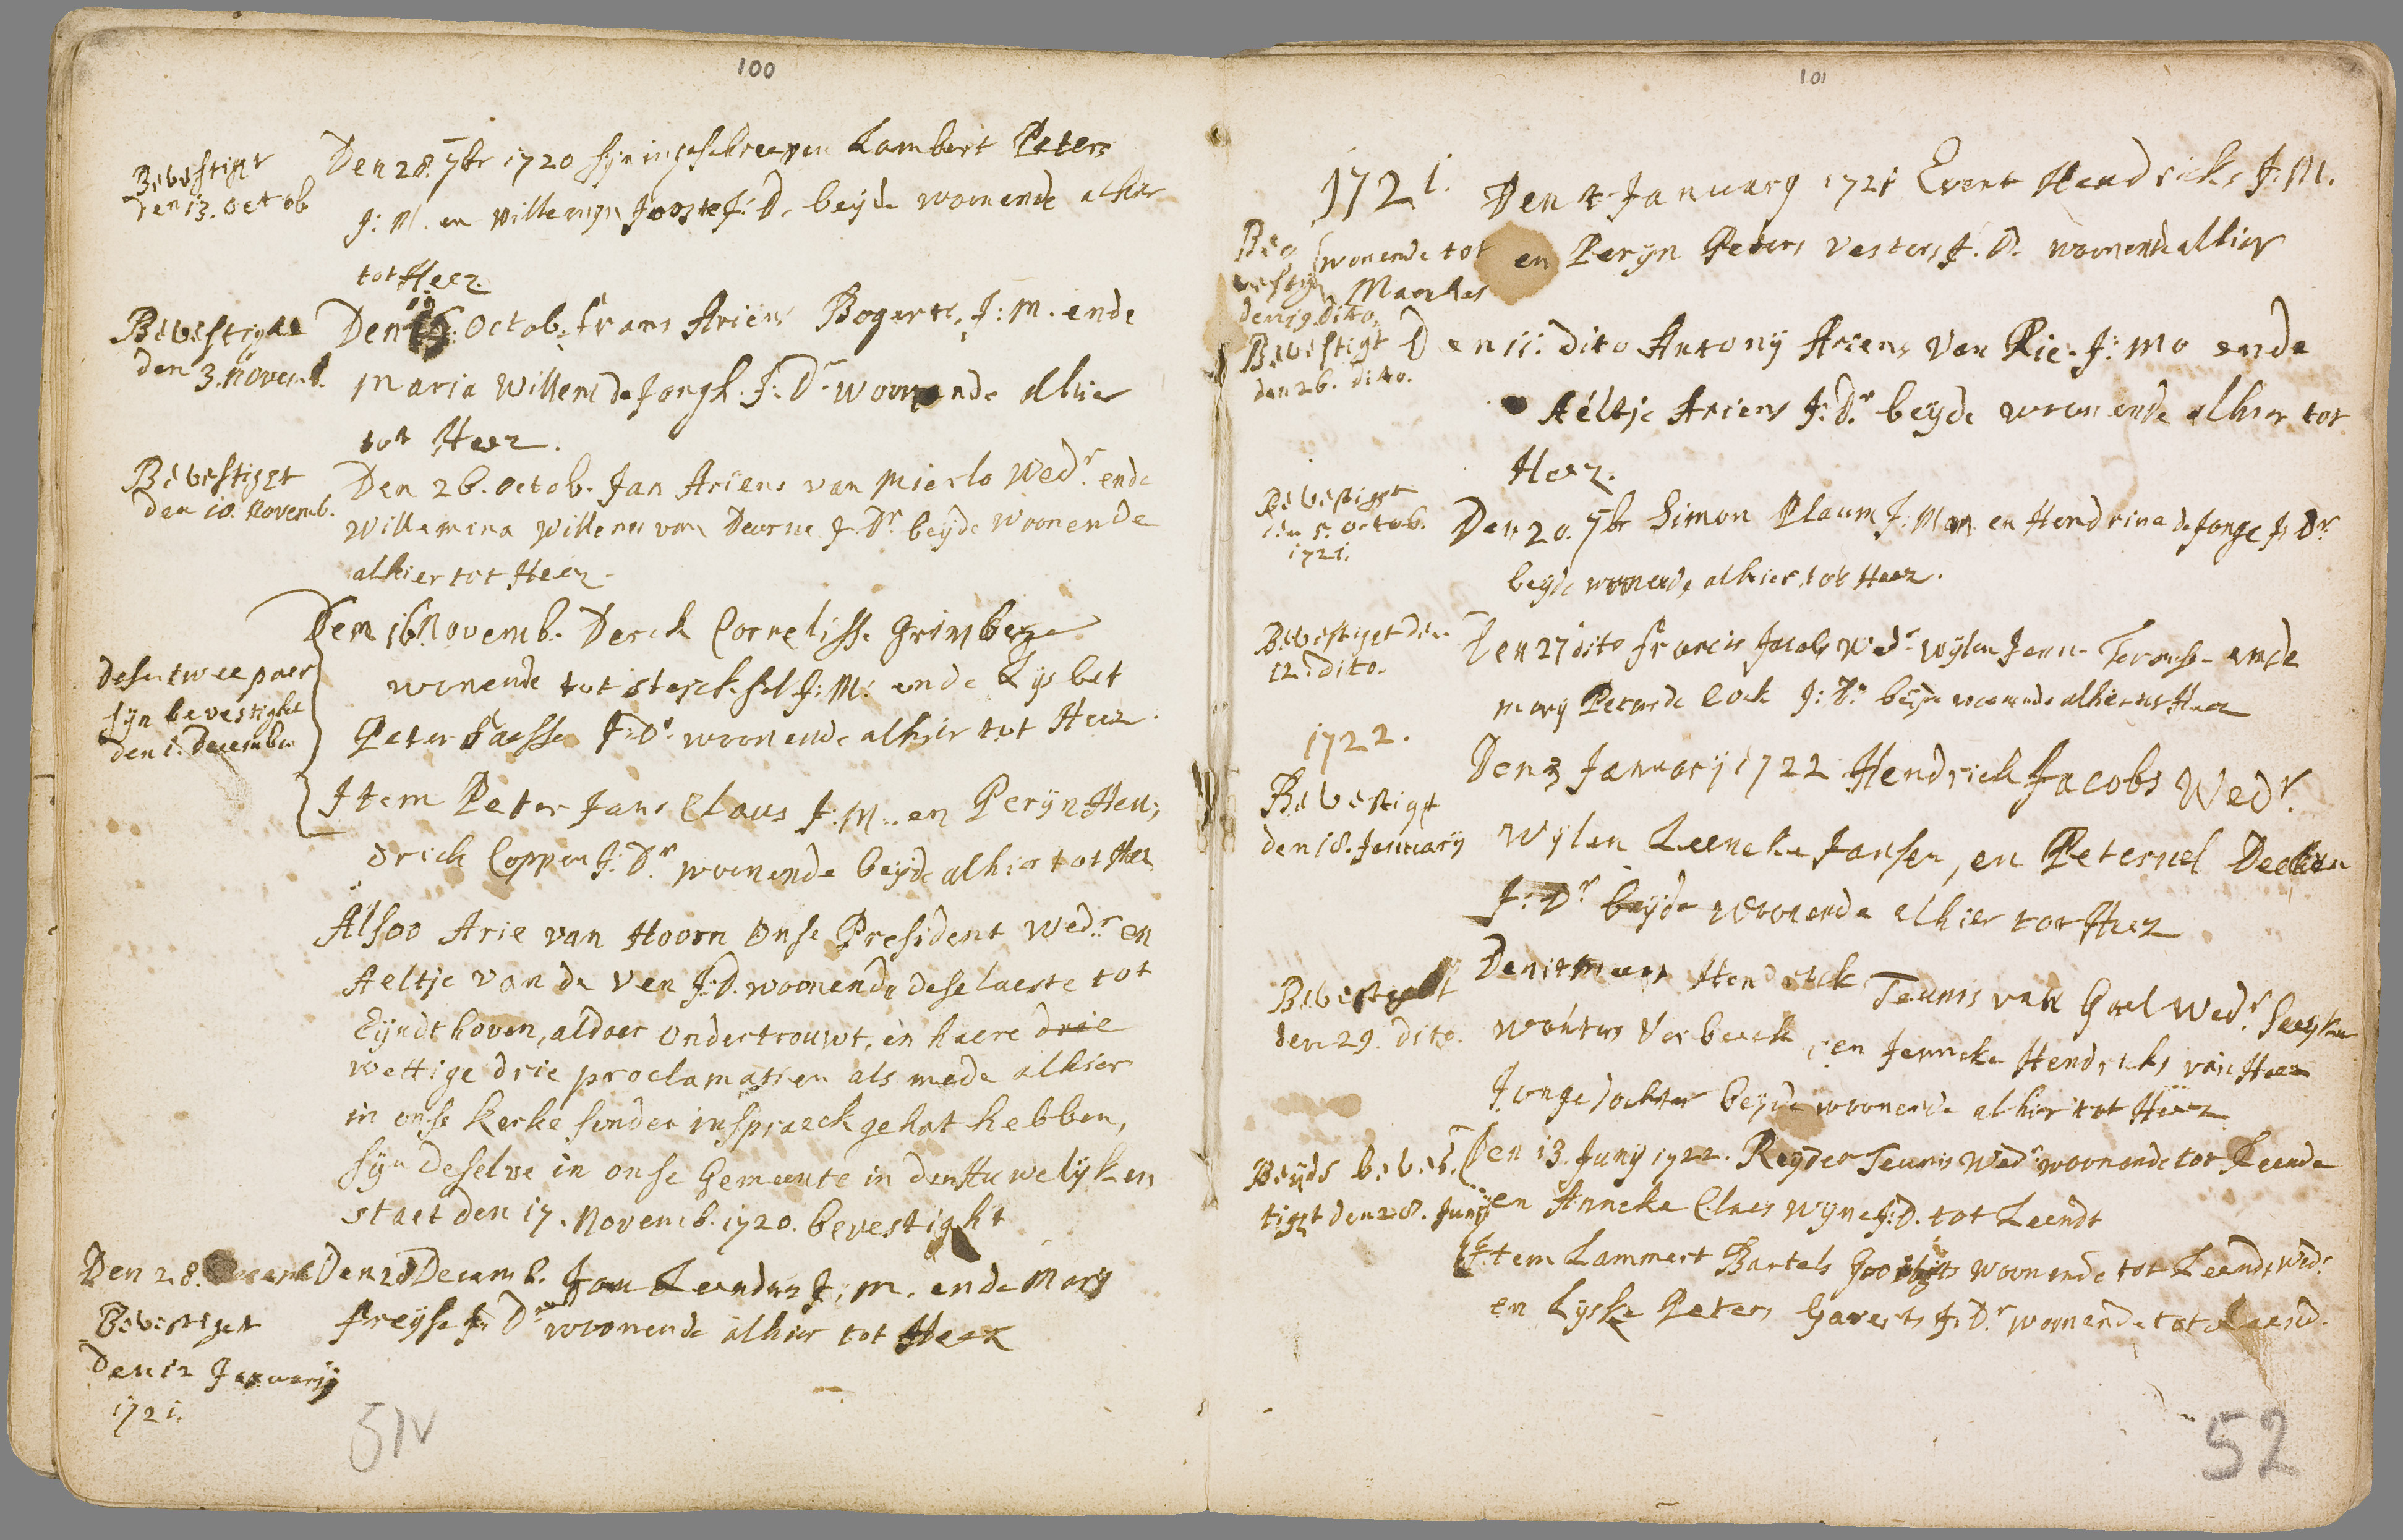 100
Bevestigt
den 13. octob
Den 28. 7br 1720 syn ingeschreeven Lambert Peters
J: M. en Willemyn Jooste J: D. beyde woonende alhier
tot Heez.
Bevestight
den 3. novemb.
Den octob. Frans Ariens Bogerts, J: M. ende
Maria Willem de Jongh. J: Dr woonende alhier
tot Heez.
Bevestiget
den 10. Novemb.
Den 26. octob. Jan Ariens van Mierlo Wedr. ende
Willemina Willems van Deurne J. Dr. beyde woonende
alhier tot Heez.
Desen twee paer
syn bevestight
den 1. December
Den 16. Novemb. Derck Cornelisse Grimberge
wonende tot Stercksel J: M: ende Lysbet
Peter Faesse J: Dr. woonende alhier tot Heez.
Item Peter Jans Claus J: M. en Peryn Hen;
drick Coppen J: Dr. woonende beyde alhier tot Heez
Alsoo Arie van Hoorn onse President wedr. en
Aeltje van de Ven J: D. woonende dese laeste tot
Eyndthoven, aldaer ondertrouwt, in haere drie
wettige drie proclamatien als mede alhier
in onse Kerke sonder inspraeck gehat hebben,
syn deselve in onse Gemeente in den Huwelyken
staet den 17. Novemb. 1720. bevestight
Den 28.
Bevestiget
Den 12 January
1721.
Den 28 Decemb. Jan Leenders J: M. ende Mary
Freyse J: Dr woonende alhier tot Heez
51v
101
1721.
Den 4 January 1721 Evert Hendricks J: M.
wonende tot en Peryn Peters Vesters J. D. woonende alhier
Maerhes
Bevestigt
den 19. dito.
Bevestigt
den 26. dito.
Den 11. dito Antony Ariens van Rie. J: M. ende
Aeltje Ariens J: Dr. beyde woonende alhier tot
Heez.
Bevestiget
den 5. octob.
1721.
Den 20. 7br Simon Plaum J: M en Hendrina de Jonge J: Dr.
beyde woonende alhier tot Heez.
Bevestiget den
12. dito.
Den 27 dito Francis Jacobs Wedr wylen Jenn- ende
Mary Peter de Cock J: Dr. beyde woonende alhier tot Heez
1722.
Bevestigt
den 18. January
Den 3 January 1722 Hendrick Jacobs Wedr.
Wylen Leencke Jansen, en Peternel Deeken
J: Dr beyde woonende alhier tot Heez
Bevestight
den 29. dito.
Den Maert Hendrick Teunis van Gael Wedr.
Wouters Verbeeck, en Jenneke Hendricks van Heez
Jonge dochter beyde woonende alhier tot Heez
Beyde beves-
tigt den 28. Juny
Den 13. Juny 1722. Reynder Teunis Wedr. woonende tot Leende
en Anneke Claes Wyne J: D. tot Leendt
Item Lammert Bartels woonende tot Leende Wedr.
en Lyske Peters Gaverts J: Dr. woonende tot Leend.
52